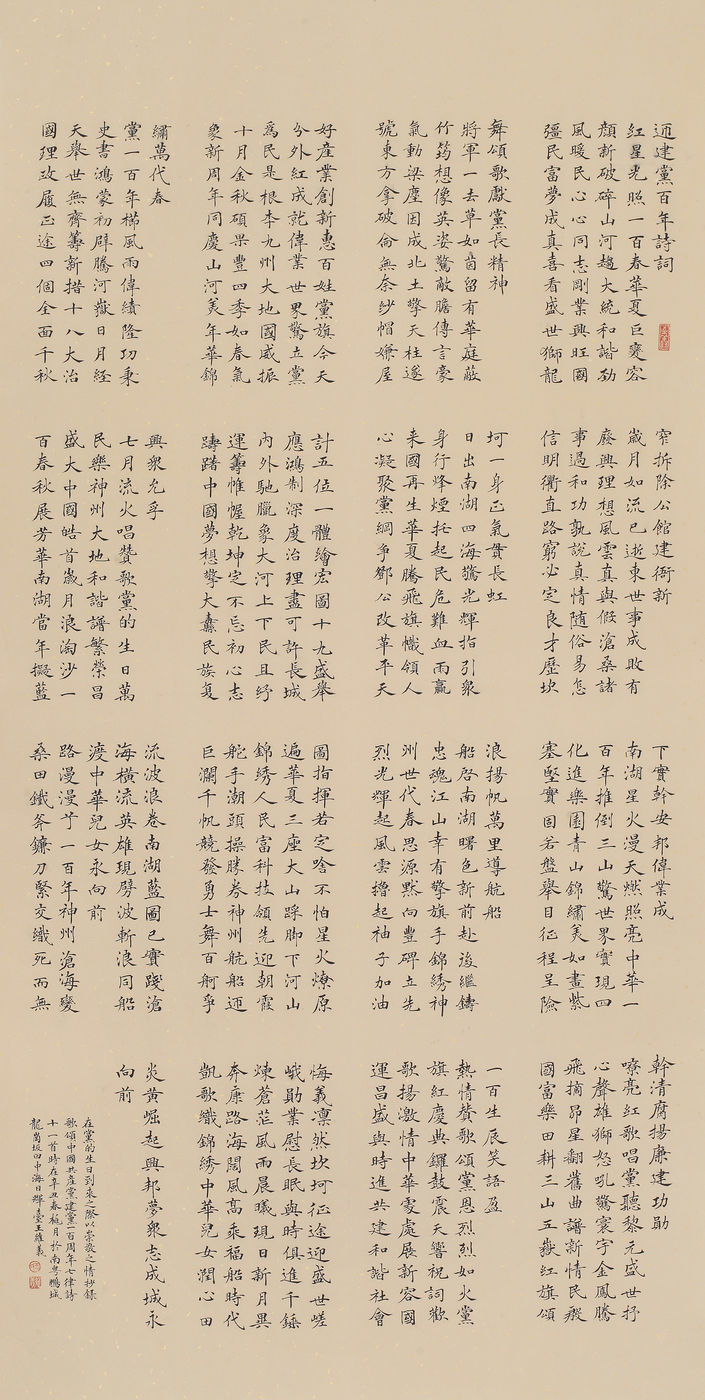 迎建黨百年詩詞
紅星光照一百春華夏巨變容
顏新破碎山河趨大統和諧勁
風暖民心心同志剛業興旺國
彊民富夢成真喜看盛世獅龍
舞頌歌獻黨長精神
將軍一去草如茵留有華庭蔽
竹筠想像英姿驚敵膽傳言豪
氣動梁塵因成北土擎天柱遂
號東方拿破侖無奈紗帽嫌屋
窄拆除公館建衙新
歲月如流已逝東世事成敗有
廢興理想風雲真與假滄桑諸
事過和功孰説真情隨俗易怎
信明衢直路窮必定良才歷坎
坷一身正氣貫長虹
日出南湖四海驚光輝指引衆
身行烽煙托起民危難血雨贏
来國再生華夏騰飛旗幟領人
心凝聚黨綱爭鄧公改革平天
下實幹安邦偉業成
南湖星火漫天燃照亮中華一
百年推倒三山驚世界實現四
化進樂園青山錦繡美如畫紫
塞堅實固若盤舉目征程呈險
浪揚帆萬里導航船
船啓南湖曙色新前赴後繼鑄
忠魂江山幸有擎旗手錦綉神
州世代春思源默向豐碑立先
烈光輝起風雲擼起袖子加油
幹清腐揚廉建功勛
嘹亮紅歌唱黨聽黎元盛世抒
心聲雄獅怒吼驚寰宇金鳳騰
飛摘昂星翻舊曲譜新情民殷
國富樂田耕三山五嶽紅旗頌
一百生辰笑語盈
熱情賛歌頌黨恩烈烈如火黨
旗紅慶典鑼鼓震天響祝詞歡
歌揚激情中華處處展新容國
運昌盛與時進共建和諧社會
好產業創新惠百姓黨旗今天
分外紅成就偉業世界驚立黨
爲民是根本九州大地國威振
十月金秋碩果豐四季如春氣
象新周年同慶山河美年華錦
繡萬代春
黨一百年櫛風雨偉績隆功秉
史書鴻蒙初辟騰河嶽日月經
天舉世無齊籌新措十八大治
國理政履正途四個全面千秋
計五位一體繪宏圖十九盛舉
應鴻制深度治理盡可許長城
内外馳臘象大河上下民且紓
運籌帷幄乾坤定不忘初心志
躊躇中國夢想擎大纛民族复
興衆允乎
七月流火唱賛歌黨的生日萬
民樂神州大地和諧譜繁榮昌
盛大中國皓首歲月浪淘沙一
百春秋展芳華南湖當年擬藍
圖指揮若定啥不怕星火燎原
遍華夏三座大山踩脚下河山
錦綉人民富科技領先迎朝霞
舵手潮頭操勝券神州航船迊
巨瀾千帆競發勇士舞百舸爭
流波浪卷南湖藍圖已實踐滄
海横流英雄現劈波斬浪同船
渡中華兒女永向前
路漫漫兮一百年神州滄海變
桑田鐵斧鐮刀緊交織死而無
悔義凛然坎坷征途迎盛世嵯
峨勛業慰長眠與時俱進千錘
煉蒼茫風雨晨曦現日新月異
奔康路海闊風高乘福船時代
凱歌織錦綉中華兒女潤心田
炎黄崛起興邦夢衆志成城永
向前
在黨的生日到来之際以崇敬之情抄録
歌頌中國共產黨建黨一百周年七律詩
十一首時在辛丑春桃月於南粤鵬城
龍崗坂田中海日輝臺王維義